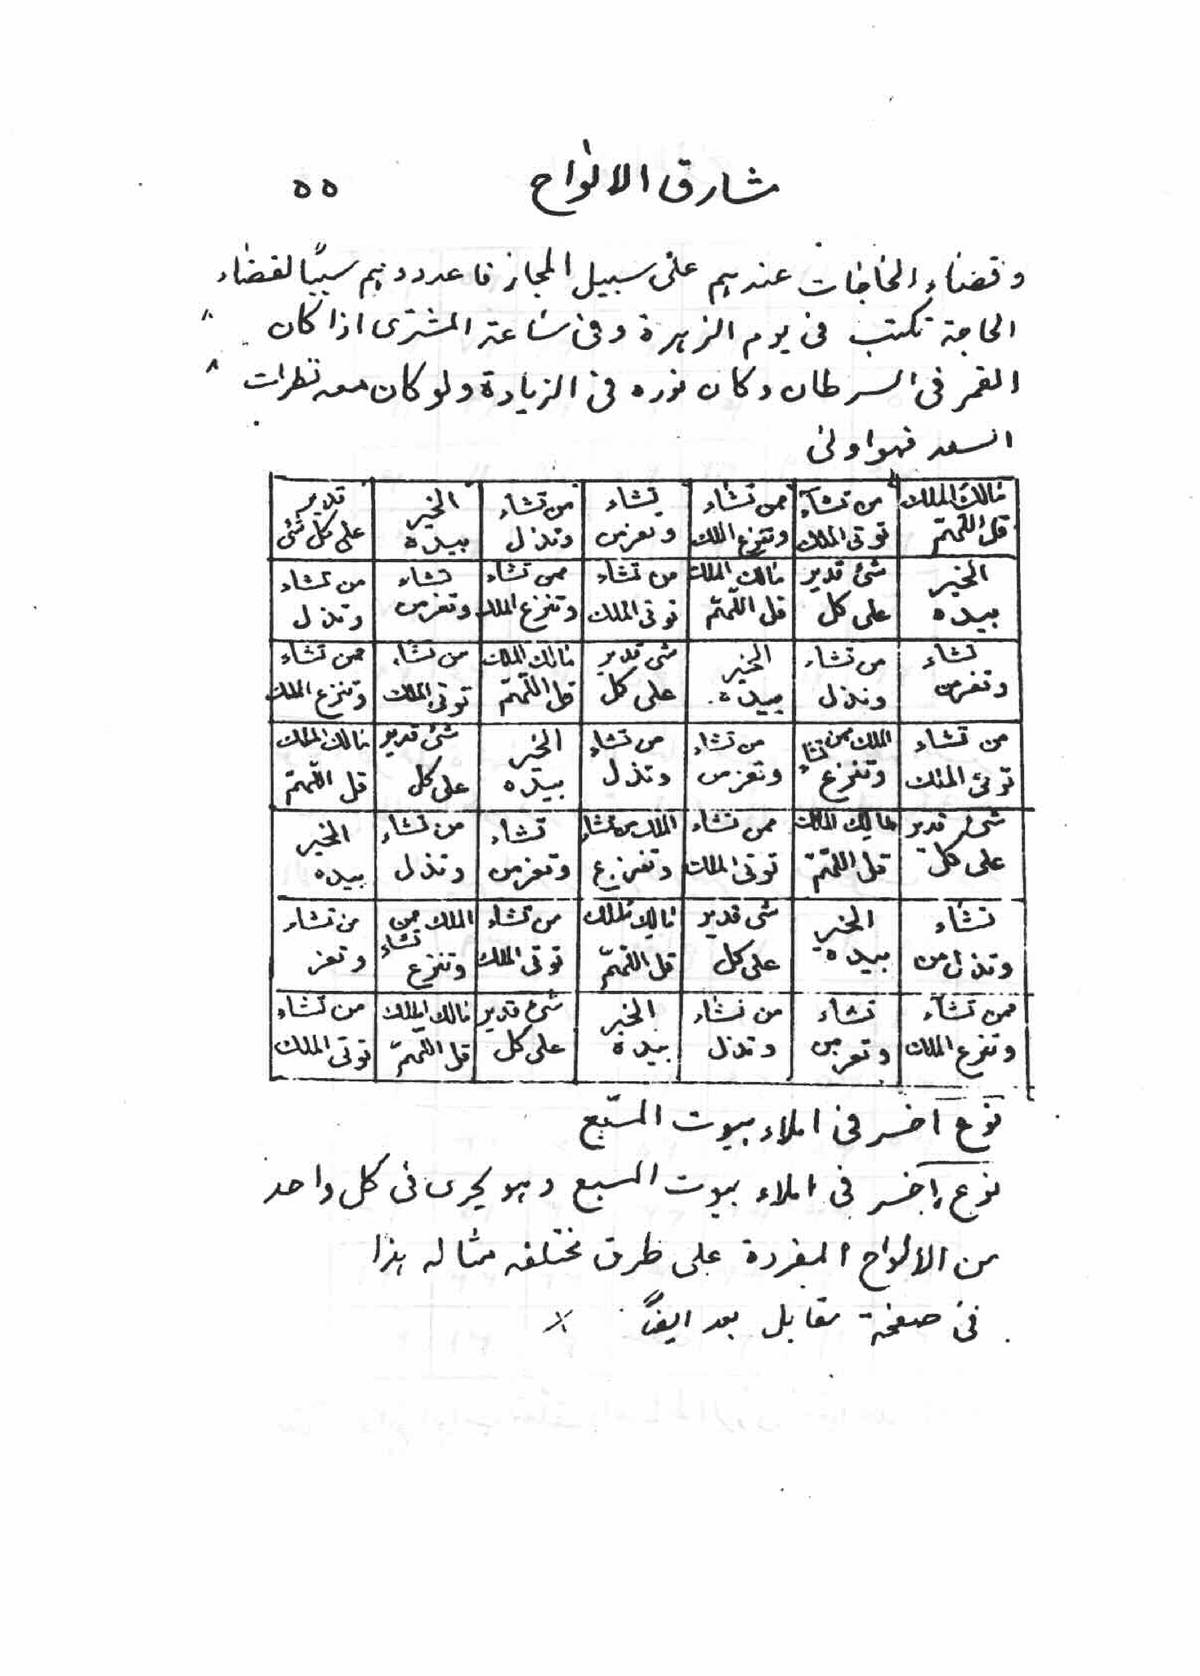 شارق الالواح ٥٥
وقضاء الحاجات عندهم على سبيل المجاز فاعدددهم سببًا لقضاء
الحاجة تكتب فى يوم الزهرة وفى ساعة المشترى اذا كان
القمر فى السرطان وكان نوره فى الزيادة ولو كان معه نظرات
السعد فهو اولى
مالك الملك قل اللّهمّ | من تشآء توتى الملك | ممن تشاء وتنزع الملك | تشاء وتعزمن | من تشاء وتذل | الخير بيده | قدير على كل شئ
الخير بيده | شئ قدير على كل | مالك الملك قل اللّهمّ | من تشاء توتى الملك | ممن تشاء وتنزع الملك | تشاء وتعزمن | من تشاء وتذل
تشاء وتعزمن | من تشاء وتذل | الخير بيده | شئ قدير على كل | مالك الملك قل اللّهمّ | من تشاء توتى الملك | ممن تشاء وتنزع الملك
من تشاء توتى الملك | الملك ممن تشاء وتنزع | من تشاء وتعزمن | من تشاء وتذل | الخير بيده | شئ قدير على كل | مالك الملك قل اللّهمّ
شئ قدير على كل | مالك الملك قل اللّهمّ | ممن تشاء توتى الملك | الملك من تشاء وتنزع | تشاء وتعزمن | من تشاء وتذل | الخير بيده
تشاء وتذل من | الخير بيده | شئ قدير على كل | مالك الملك قل اللّهمّ | من تشاء توتى الملك | الملك ممن تشاء وتنزع | من تشاء وتعز
ممن تشآء وتنزع الملك | تشاء وتعزمن | من تشاء وتذل | الخير بيده | شئ قدير على كل | مالك الملك قل اللّهمّ | من تشاء توتى الملك
نوع آخر فى املاء بيوت المسبّع
نوع آخر فى املاء بيوت المسبع وهو يجرى فى كل واحد
من الالواح المفردة على طرق مختلفه مثاله هذا
فى صفحة مقابل بعد ايضًا